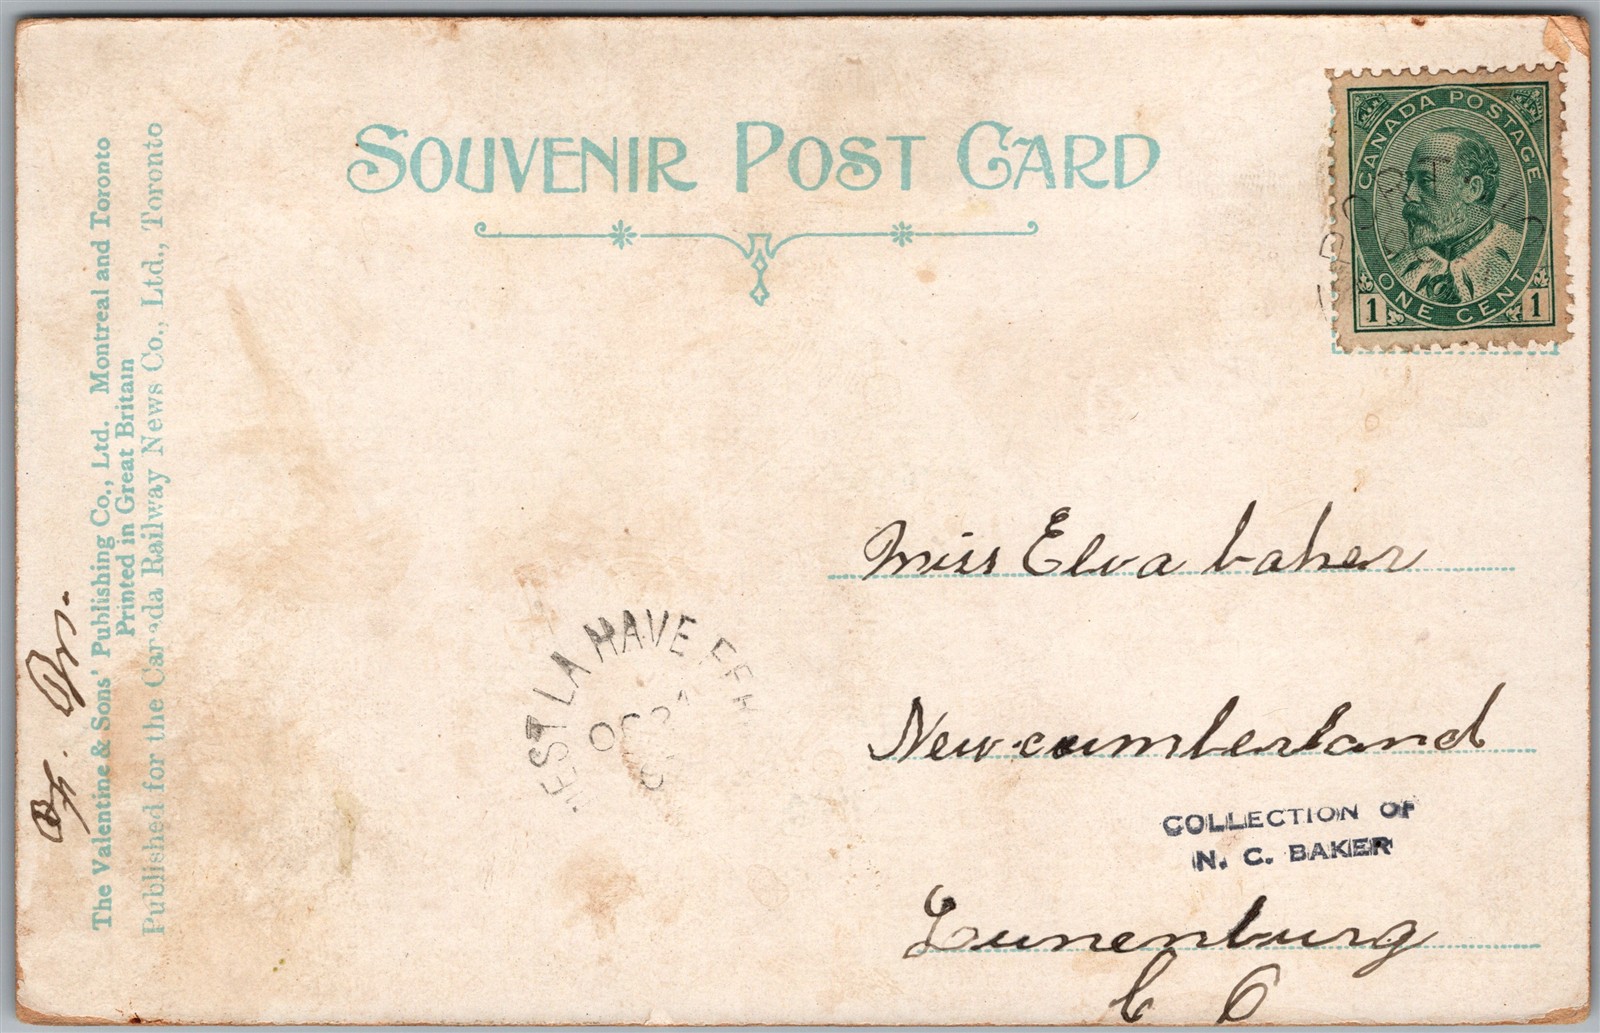 SOUVENIR POST CARD
CANADA POSTAGE
ONE CENT
1 1
The Valentine & Sons' Publishing Co., Ltd. Montreal and Toronto
Printed in Great Britain
Published for the Canada Railway News Co., Ltd., Toronto
Miss Elva baker
WEST LA HAVE FER
OC
New-cumberland
COLLECTION OF
N. C. BAKER
Lunenburg
C C